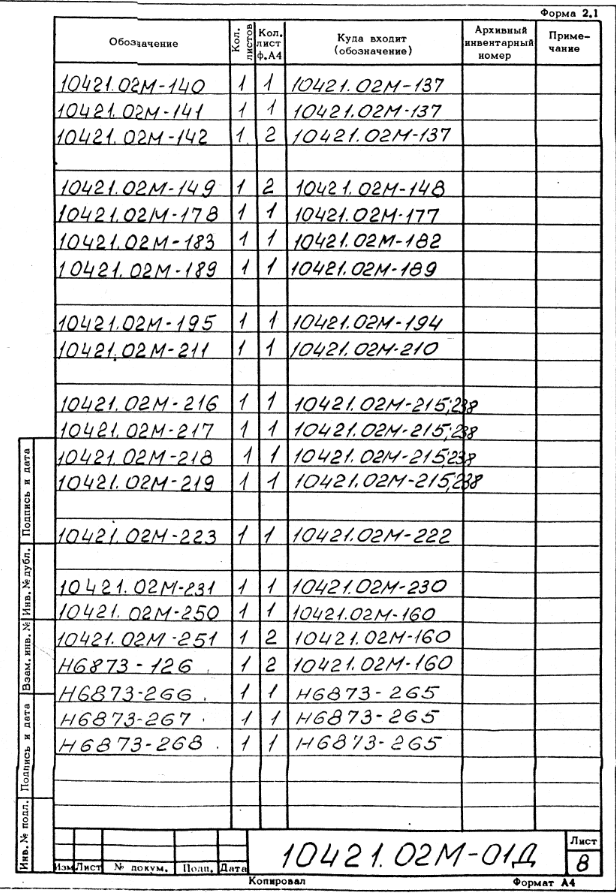 Форма 2.1
Обозначение Кол. листов Кол. лист ф.А4 Куда входит (обозначение) Архивный инвентарный номер Приме-чание
10421.02М-140 1 1 10421.02М-137
10421.02М-141 1 1 10421.02М-137
10421.02М-142 1 2 10421.02М-137
10421.02М-149 1 2 10421.02М-148
10421.02М-178 1 1 10421.02М-177
10421.02М-183 1 1 10421.02М-182
10421.02М-189 1 1 10421.02М-189
10421.02М-195 1 1 10421.02М-194
10421.02М-211 1 1 10421.02М-210
10421.02М-216 1 1 10421.02М-215;238
10421.02М-217 1 1 10421.02М-215;238
10421.02М-218 1 1 10421.02М-215;238
10421.02М-219 1 1 10421.02М-215;238
10421.02М-223 1 1 10421.02М-222
10421.02М-231 1 1 10421.02М-230
10421.02М-250 1 1 10421.02М-160
10421.02М-251 1 2 10421.02М-160
Н6873-126 1 2 10421.02М-160
Н6873-266 1 1 Н6873-265
Н6873-267 1 1 Н6873-265
Н6873-268 1 1 Н6873-265
Подпись и дата
Инв. № дубл.
Взам. инв. №
Подпись и дата
Инв. № подл.
Изм Лист № докум. Подп. Дата
10421.02М-01Д
Лист
8
Копировал
Формат А4